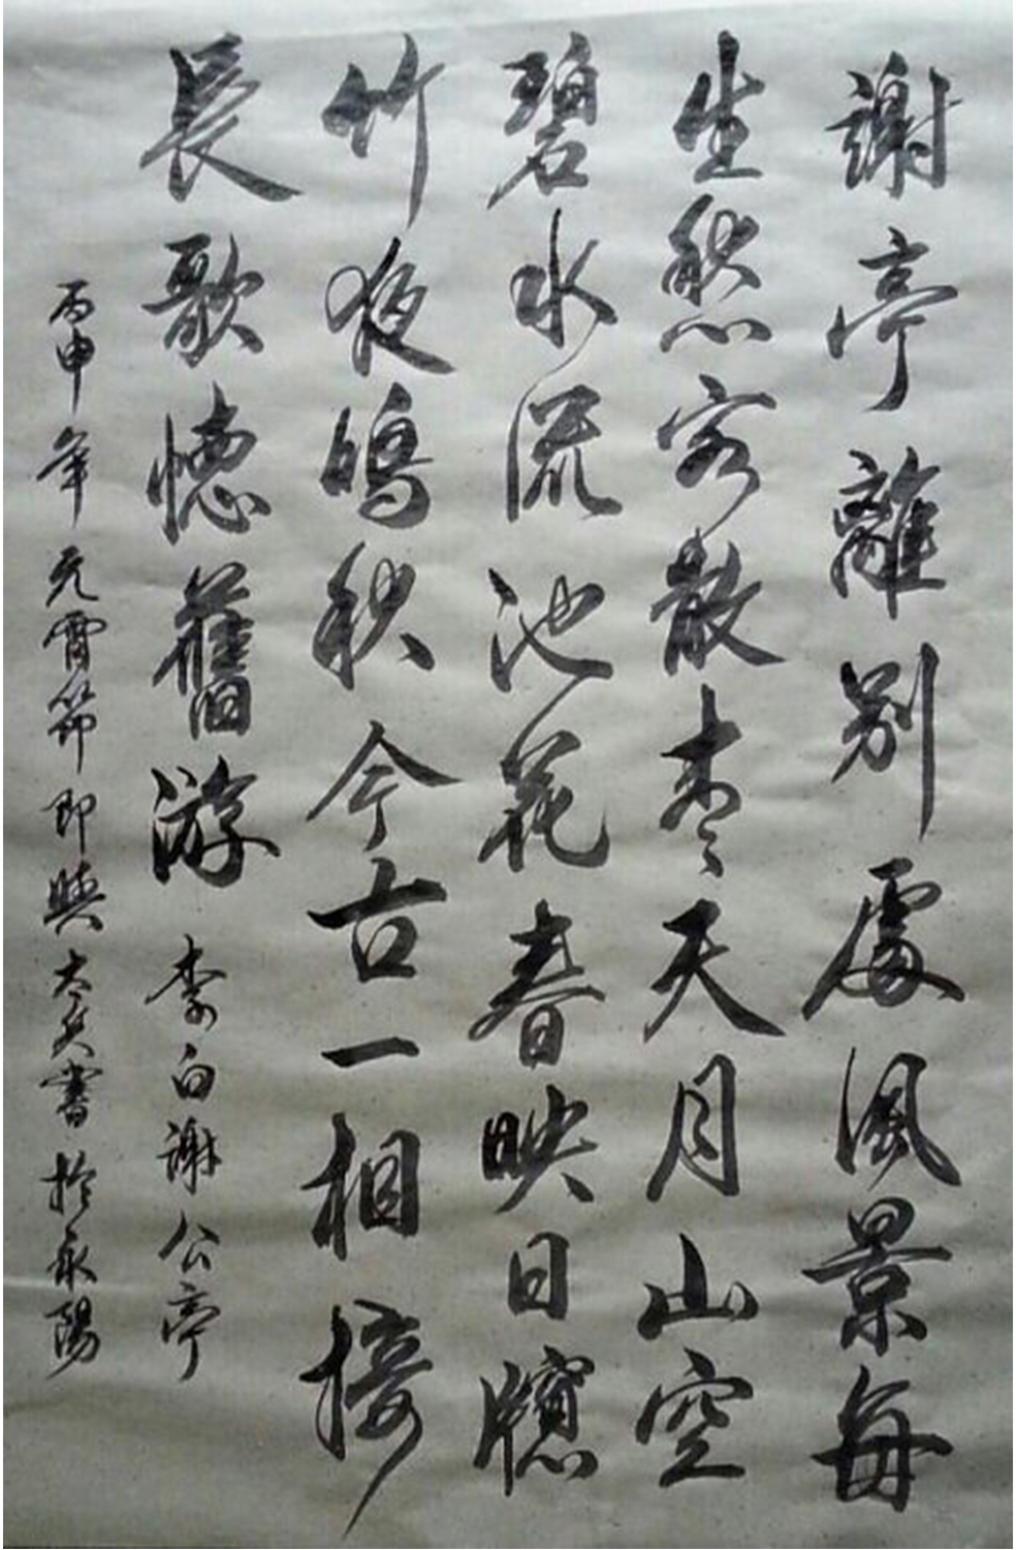 謝亭離別處風景每
生愁客散青天月山空
碧水流池花春映日牕
竹夜鳴秋今古一相接
長歌憶舊游 李白謝公亭
丙申年元宵節即興書於永陽